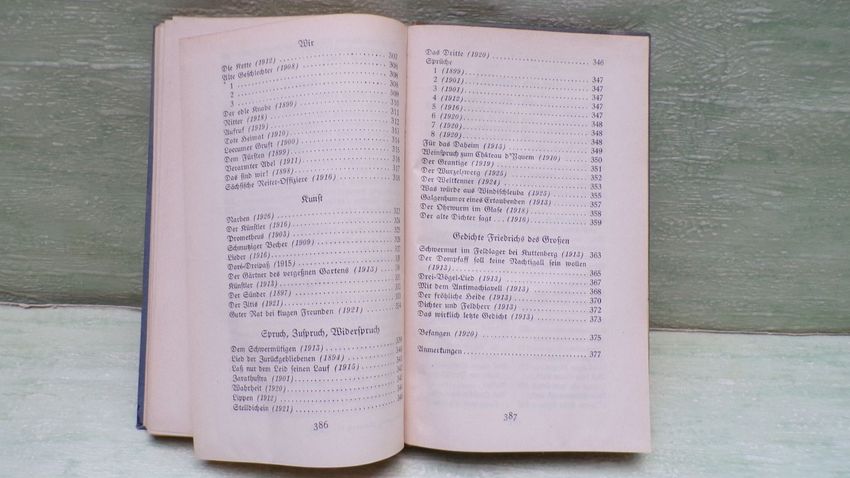 Wir
Die Kette (1912) 307
Alte Geschlechter (1908) 308
1 308
2 308
3 309
Der edle Knabe (1899) 310
Ritter (1918) 311
Aufruf (1919) 312
Tote Heimat (1910) 313
Loccumer Gruft (1900) 314
Dem Fürsten (1899) 315
Verarmter Adel (1911) 316
Das sind wir! (1898) 317
Sächsische Reiter-Offiziere (1916) 318
Kunst
Narben (1926)
Der Künstler (1916)
Prometheus (1903)
Schmutziger Becher (1909)
Lieder (1916)
Dori-Dreipaß (1915)
Der Gärtner des vergeßnen Gartens (1913)
Künstler (1913)
Der Sünder (1897)
Der Iltis (1921)
Guter Rat bei klugen Freunden (1921)
Spruch, Zuspruch, Widerspruch
Dem Schwermütigen (1913)
Lied der Zurückgebliebenen (1894)
Laß nur dem Leid seinen Lauf (1915)
Zarathustra (1901)
Wahrheit (1920)
Lippen (1912)
Stelldichein (1921)
386
Das Dritte (1920) 346
Sprüche
1 (1899) 347
2 (1901) 347
3 (1901) 347
4 (1912) 347
5 (1916) 347
6 (1920) 348
7 (1920) 348
8 (1920) 348
Für das Daheim (1913) 349
Weinspruch zum Château d'Yquem (1910) 350
Der Grantige (1919) 351
Der Wurzelzwerg (1925) 352
Der Weltkenner (1924) 353
Was würde aus Windischleuba (1925) 355
Galgenhumor eines Ertaubenden (1913) 357
Der Ohrwurm im Glase (1918) 358
Der alte Dichter sagt . . . (1916) 359
Gedichte Friedrichs des Großen
Schwermut im Feldlager bei Kuttenberg (1913) 363
Der Dompfaff soll keine Nachtigall sein wollen
(1913) 365
Drei-Vögel-Lied (1913) 367
Mit dem Antimachiavell (1913) 368
Der fröhliche Heide (1913) 370
Dichter und Feldherr (1913) 372
Das wirklich letzte Gedicht (1913) 373
Befangen (1920) 375
Anmerkungen 377
387